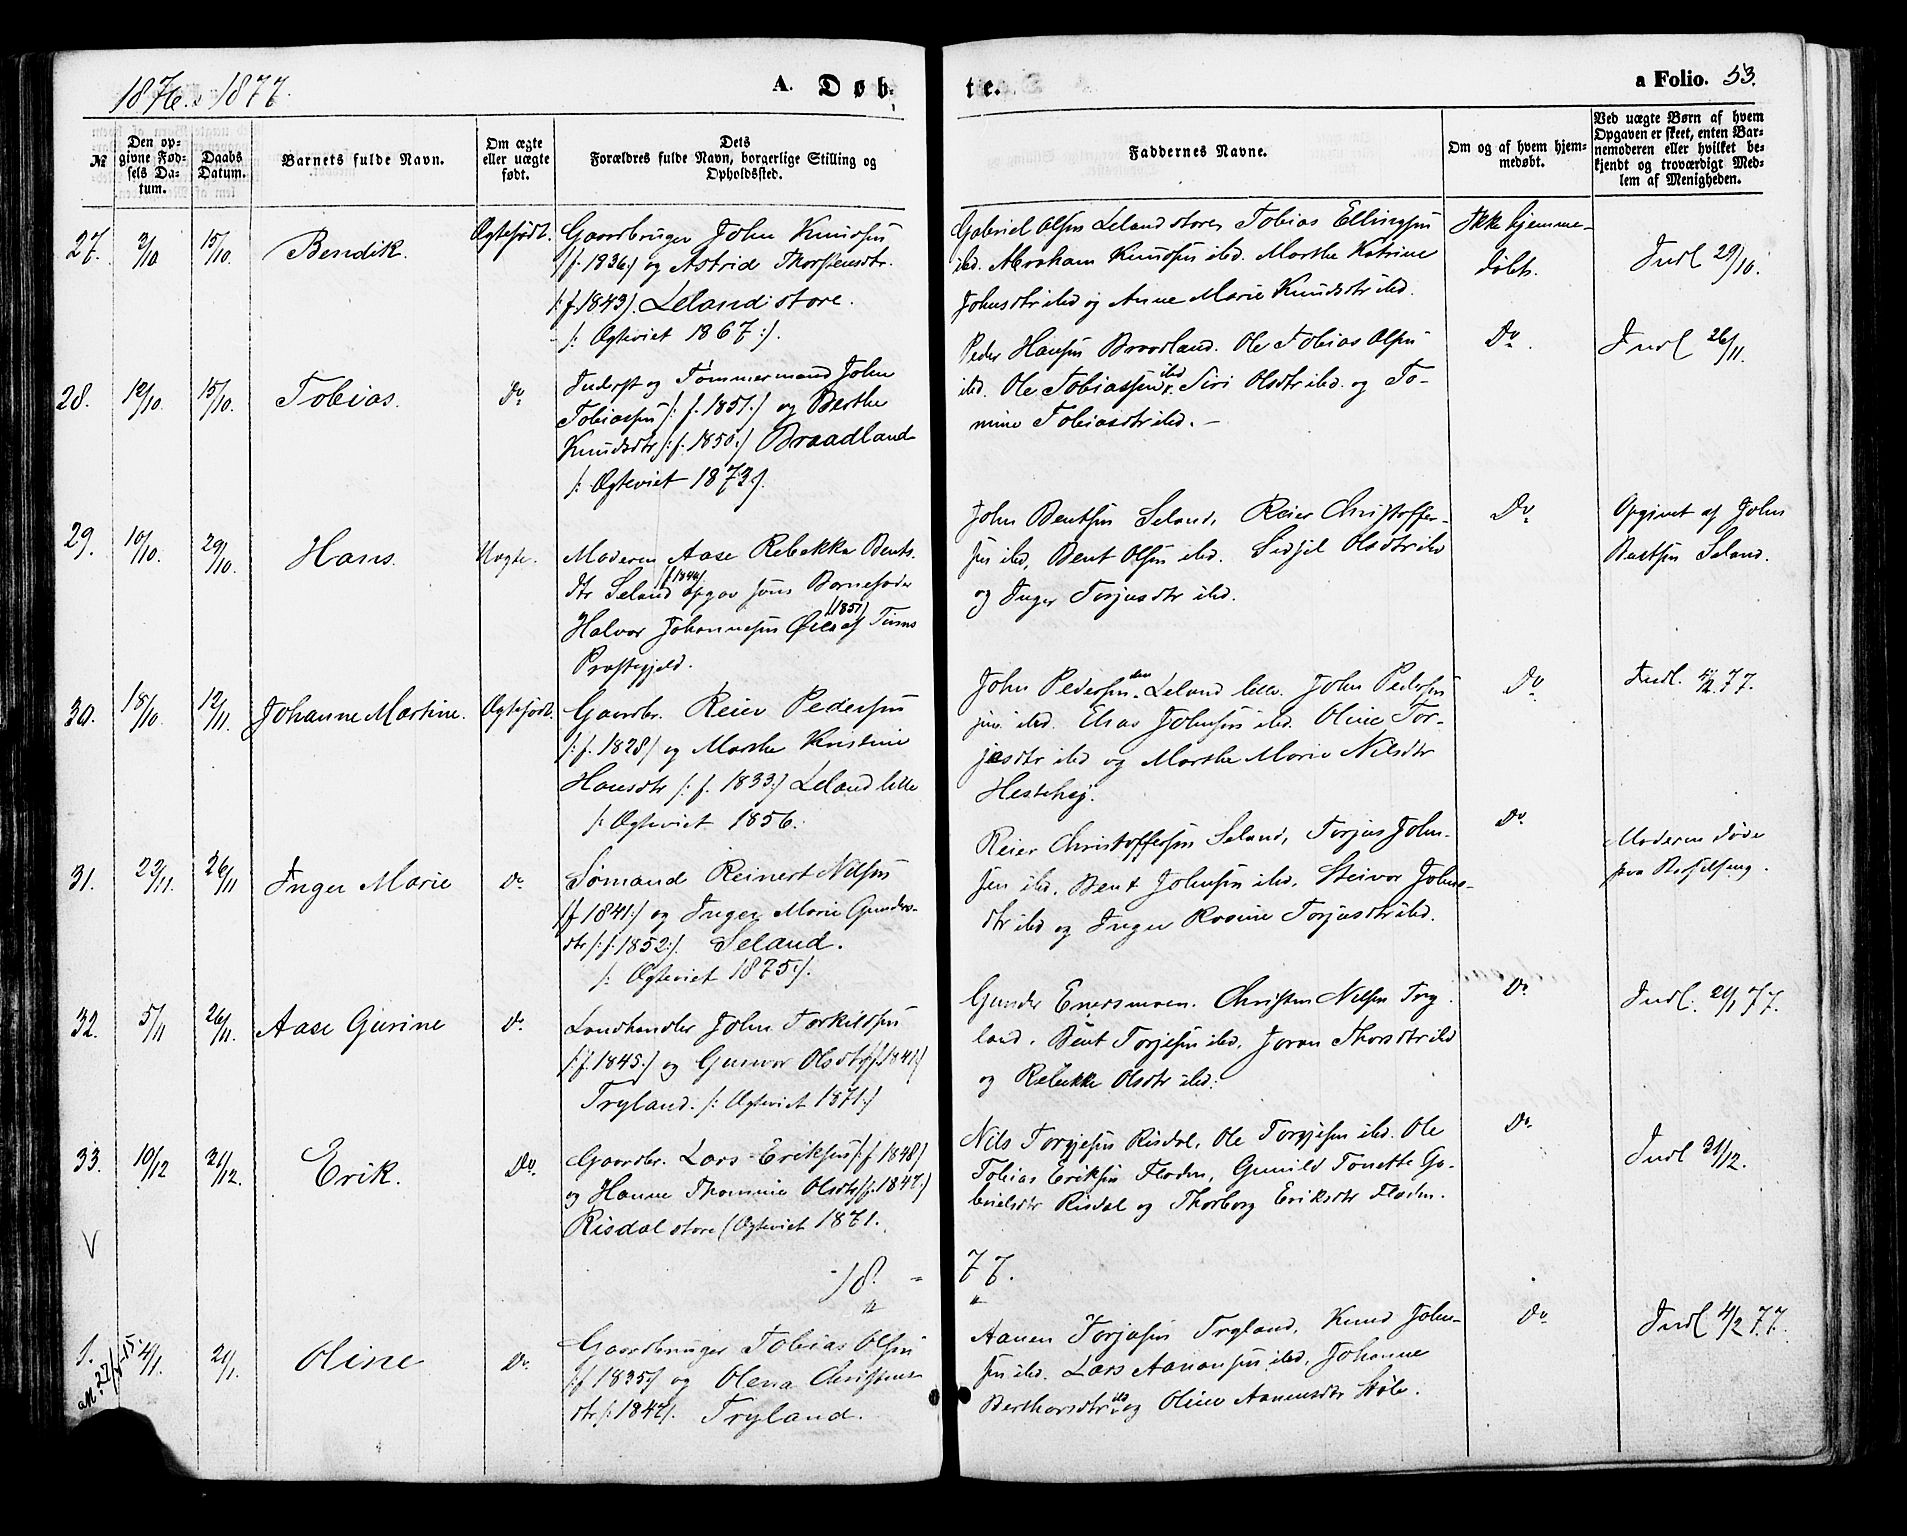 1876. & 1877.
A. Døb-
te.
a Folio. 53.
№
Den op-
givne Fød-
sels Da-
tum.
Daabs
Datum.
Barnets fulde Navn.
Om ægte
eller uægte
født.
Dets
Forældres fulde Navn, borgerlige Stilling og
Opholdssted.
Faddernes Navne.
Om og af hvem hjem-
medøbt.
Ved uægte Børn af hvem
Opgaven er skeet, enten Bar-
nemoderen eller hvilket be-
kjendt og troværdigt Med-
lem af Menigheden.
27. 3/10 15/10. Bendik. Ægtefødt.
Gaardbruger John Knudsen
/: f. 1836 :/ og Astrid Thorstensdtr.
/: f. 1843 :/. Leland store.
/: Ægteviet 1867 :/.
Gabriel Olsen Leland store, Tobias Ellingsen
ibd. Abraham Knudsen ibd. Marthe Katrine
Johnsdtr ibd og Anne Marie Knudsdtr ibd.
Ikke hjemme-
døbt.
Indl 29/10.
28. 12/10. 15/10. Tobias. Do
Inderst og Tømmermand John
Tobiassen /: f. 1851 :/ og Berthe
Knudsdtr /: f. 1850 :/ Braadland
/: Ægteviet 1873 :/.
Peder Hansen Braadland. Ole Tobias Olsen
ibd. Ole Tobiassen ibd. Siri Olsdtr ibd. og To-
mine Tobiasdtr ibd. –
Do.
Indl 26/11.
29. 10/10. 29/10. Hans. Uægte.
Moderen Aase Rebekka Bents-
dtr Seland f 1844. opgav som Barnefader
Halvor Johannesen 1851) af
Præstegjeld.
John Bentsen Seland, Reier Christoffer-
sen ibd, Bent Olsen ibd. Sidsel Olsdtr ibd
og Inger Torjusdtr ibd.
Do
Opgivet af John
Bentsen Seland.
30. 18/10. 12/11. Johanne Martine. Ægtefødt.
Gaardbr. Reier Pedersen
/: f. 1828 :/ og Marthe Kristine
Hansdtr /: f. 1833 :/ Leland lille
/: Ægteviet 1856.
John Pedersen Leland lille. John Pedersen
jun ibd. Elias Johnsen ibd. Oline Tor-
jusdtr ibd og Marthe Marie Nilsdtr
Hestehej.
Do
Indl. 77.
31. 22/11. 26/11 Inger Marie Do
Sømand Reinert Nilsen
/: f 1841 :/ og Inger Marie Gunders-
dtr /: f. 1852 :/. Seland.
/: Ægteviet 1875 :/.
Reier Christoffersen Seland, Torjus John-
sen ibd. Bent Johnsen ibd. Steivor Johns-
dtr ibd og Inger Rosine Torjusdtr ibd.
Do
Moderen døde
paa Barselseng.
32. 5/11 26/11. Aase Gurine Do
Landhandler John Torkildsen
/: f. 1845 :/ og Gunvor Olsdtr /: f. 1841 :/
Tryland. /: Ægteviet 1871 :/
Gunder Enersmoen. Christen Nilsen Tryg-
land. Bent Torjesen ibd. Joran Thorsdtr ibd
og Rebekke Olsdtr ibd.
Do
Indl. 21/1 77.
33. 10/12 31/12. Erik. Do.
Gaardbr. Lars Eriksen /: f 1848 :/
og Hanne Thomine Olsdtr /: f. 1847 :/
Risdal store / Ægteviet 1871.
Nils Torgjesen Risdal, Ole Torgjesen ibd. Ole
Tobias Eriksen Floden, Gunild Tonette Ga-
brielsdtr Risdal og Thorborg Eriksdtr Floden.
Do.
Indl 31/12.
V
18 77.
1. 4/1. 21/1. Oline Do.
Gaardbruger Tobias Olsen
/: f 1835 :/ og Olena Christens-
dtr /: 1842 :/. Tryland.
Aanen Torjesen Tryland, Knud John-
sen ibd. Lars Aanonsen ibd, Johanne
Berthorsdtr ibd og Oline Aanensdtr Støle.
Do
Indl 4/2 77.